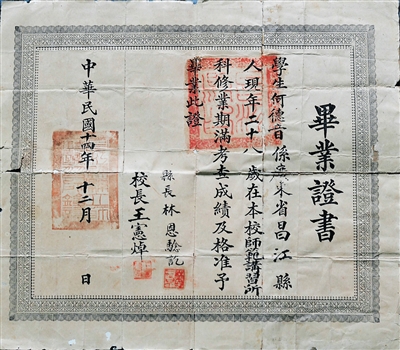 畢業證書
學生何德音係廣東省昌江縣
人現年二十八歲在本校師範講習所
科修業期滿考查成績及格准予
畢業此證
縣長林恩
校長王憲焯
中華民國十四年十二月 日